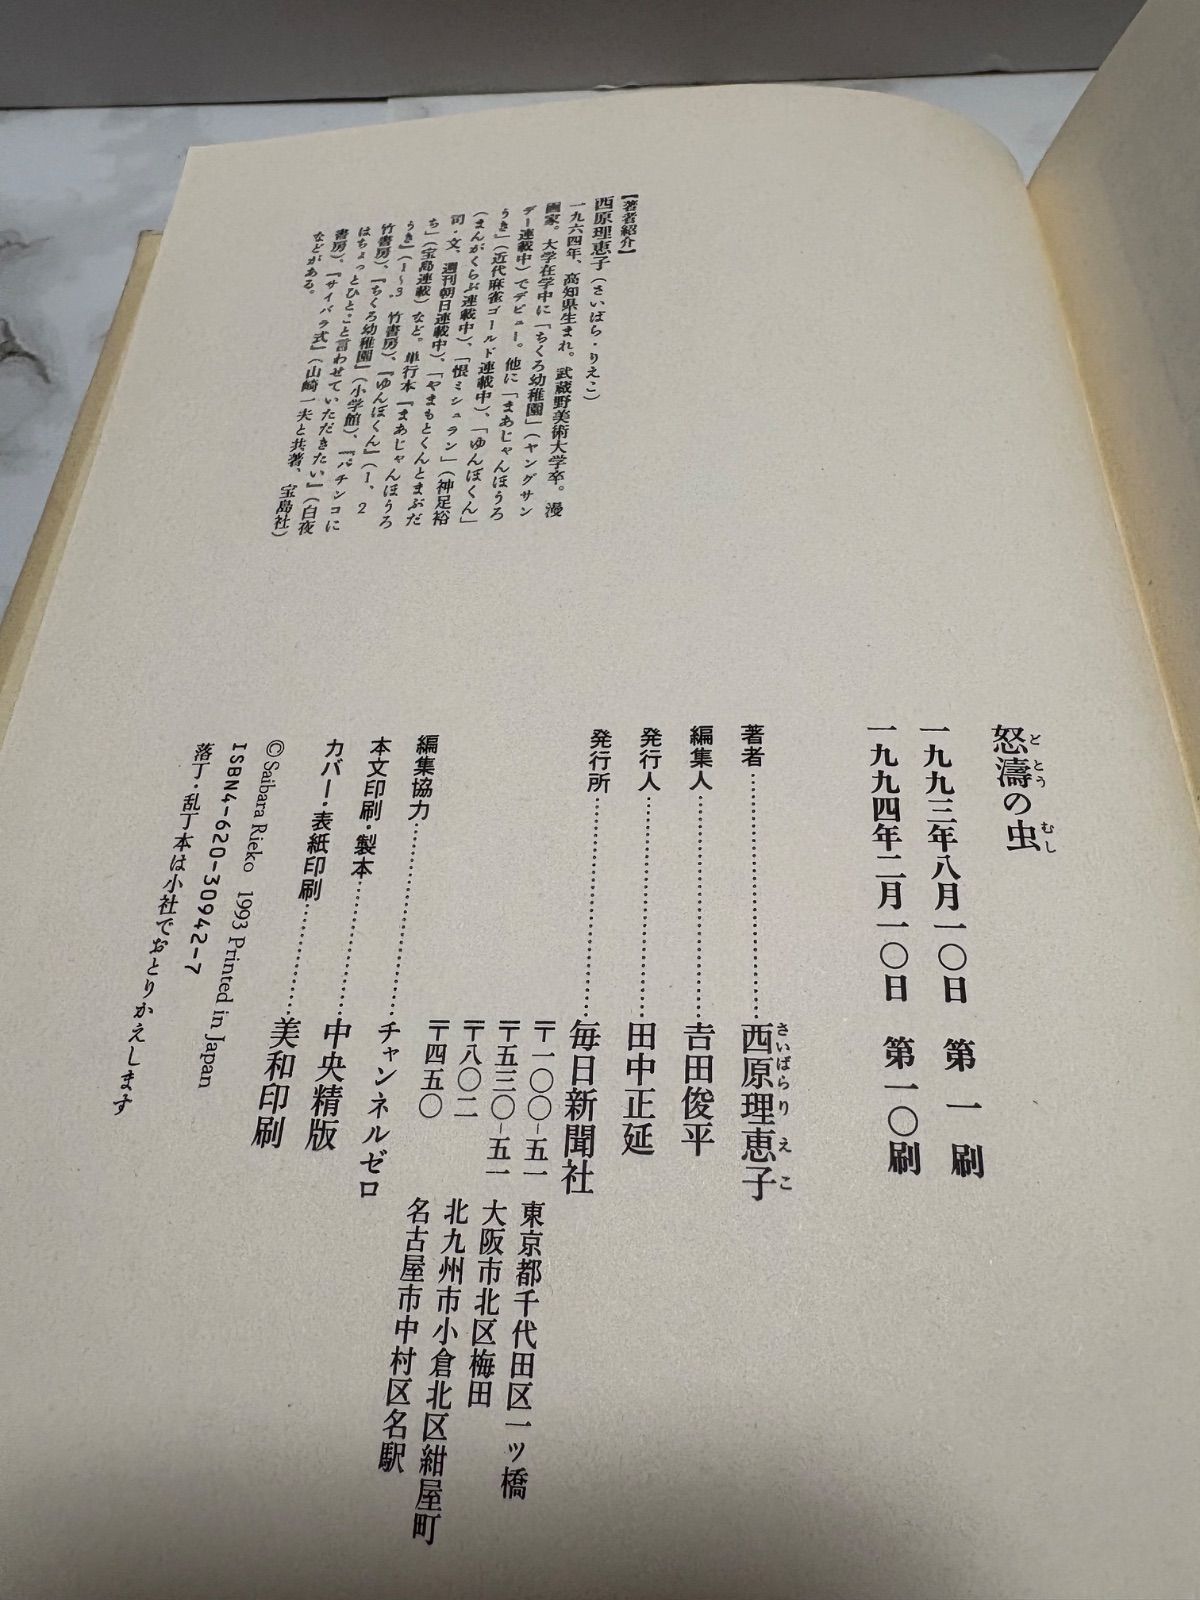 【著者紹介】
西原理恵子(さいばら・りえこ)
一九六四年、高知県生まれ。武蔵野美術大学卒。漫
画家。大学在学中に「ちくろ幼稚園」(ヤングサン
デー連載中)でデビュー。他に「まあじゃんほうろ
うき」(近代麻雀ゴールド連載中)、「ゆんぼくん」
(まんがくらぶ連載中)、「恨ミシュラン」(神足裕
司・文、週刊朝日連載中)、「やまもとくんとまぶだ
ち」(宝島連載)など。単行本『まあじゃんほうろ
うき』(1〜3、竹書房)、『ゆんぼくん』(1、2
竹書房)、『ちくろ幼稚園』(小学館)、『パチンコに
はちょっとひとこと言わせていただきたい』(白夜
書房)、『サイバラ式』(山崎一夫と共著、宝島社)
などがある。
怒濤の虫
どとう むし
一九九三年八月一〇日 第一刷
一九九四年二月一〇日 第一〇刷
著者…………西原理恵子
さいばらりえこ
編集人…………吉田俊平
発行人…………田中正延
発行所…………毎日新聞社
〒一〇〇-五一 東京都千代田区一ツ橋
〒五三〇-五一 大阪市北区梅田
〒八〇二 北九州市小倉北区紺屋町
〒四五〇 名古屋市中村区名駅
編集協力…………チャンネルゼロ
本文印刷・製本…………中央精版
カバー・表紙印刷…………美和印刷
©Saibara Rieko 1993 Printed in Japan
ISBN4-620-30942-7
落丁・乱丁本は小社でおとりかえします